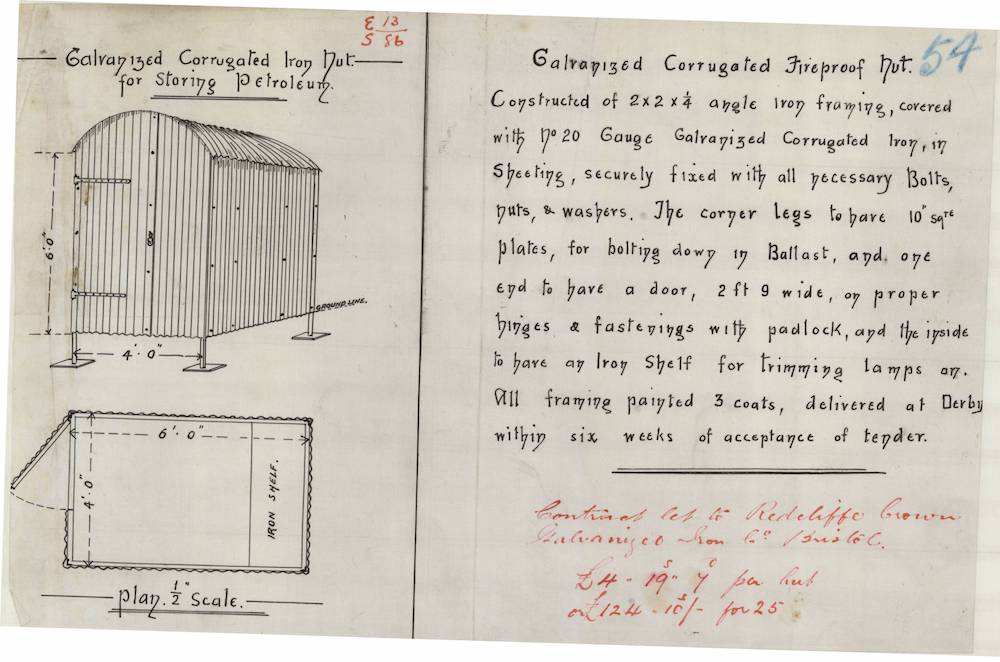 E 13
S 86
54
Galvanized Corrugated Iron Hut.
for Storing Petroleum.
6'·0"
GROUND LINE.
4'·0"
6'·0"
4'·0"
IRON SHELF.
Plan. 1/2" Scale.
Galvanized Corrugated Fireproof Hut.
Constructed of 2x2x¼ angle Iron framing, covered
with No 20 Gauge Galvanized Corrugated Iron, in
Sheeting, securely fixed with all necessary Bolts,
nuts, & washers. The corner legs to have 10" sqre
plates, for bolting down in Ballast, and one
end to have a door, 2 ft 9 wide, on proper
hinges & fastenings with padlock, and the inside
to have an Iron Shelf for trimming lamps on.
All framing painted 3 coats, delivered at Derby
within six weeks of acceptance of tender.
Contract let to Redcliffe Crown
Galvanized Iron Co. Bristol.
£4 - 19s 7d per hut
or £124 - 10s/- for 25